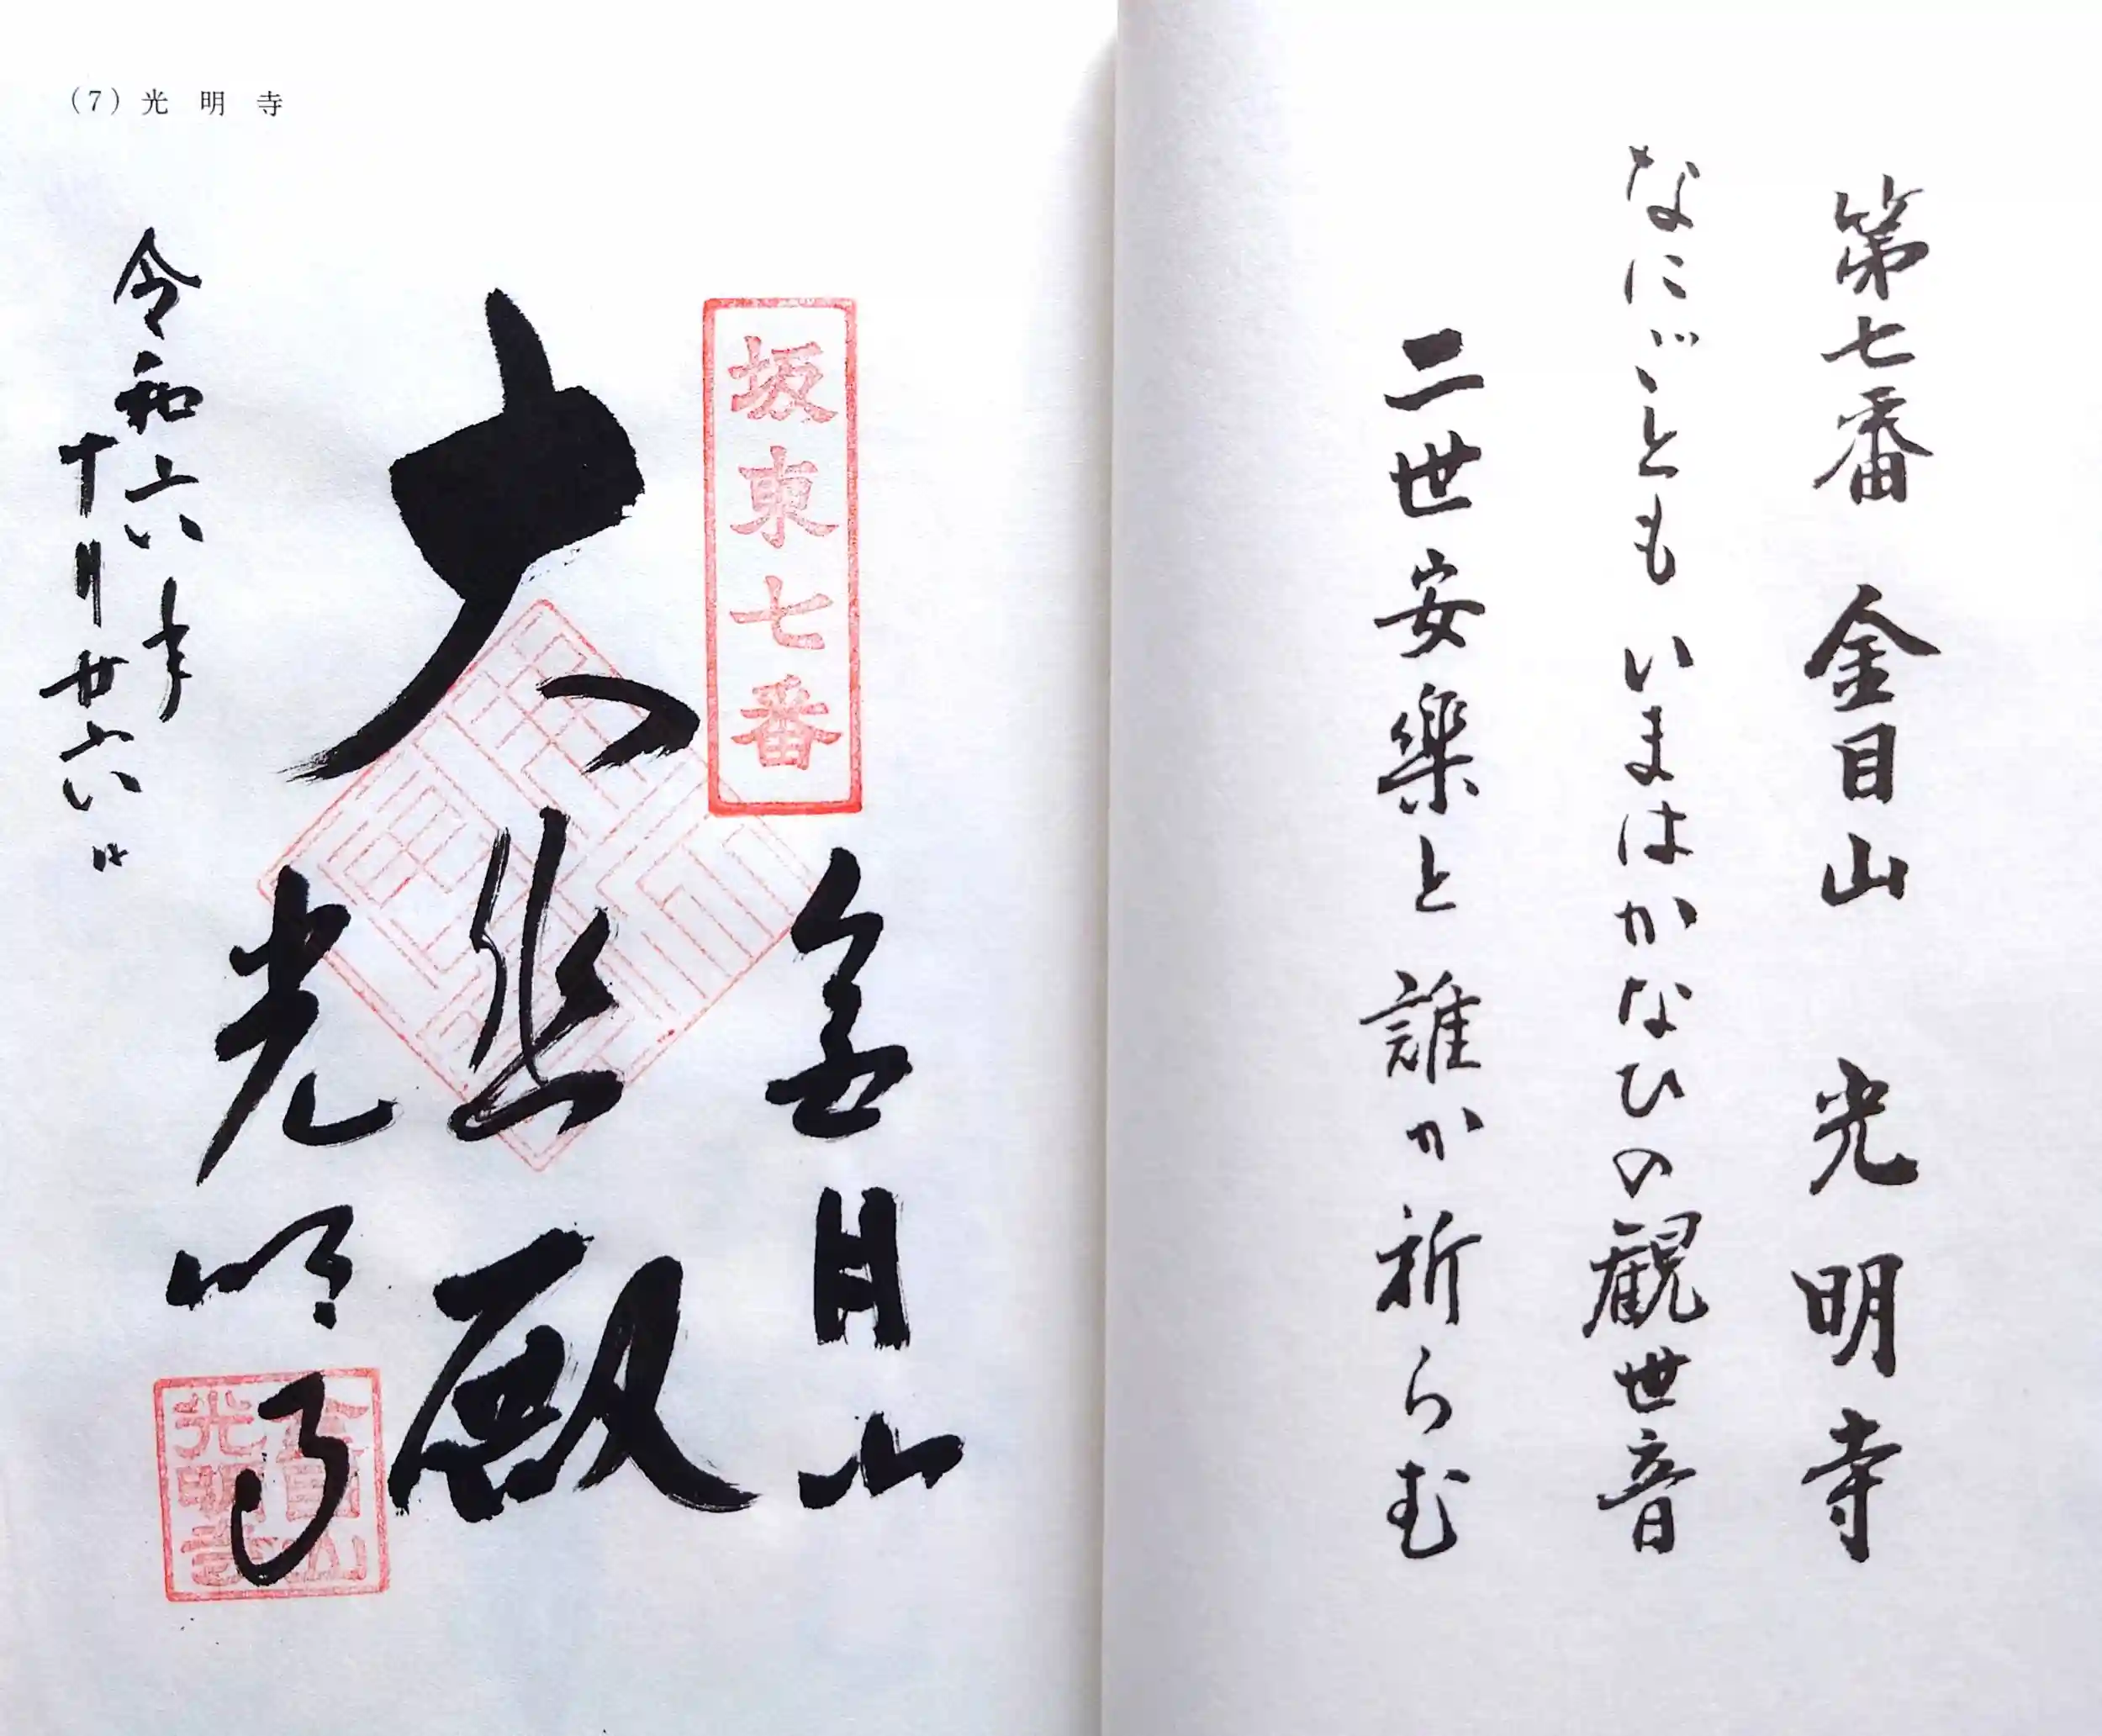 第七番 金目山 光明寺
なにごとも いまはかなひの観世音
二世安楽と 誰か祈らむ
(7) 光明寺
坂東七番
金目山
大悲殿
光明寺
令和六年
十月廿六日
金目山
光明寺